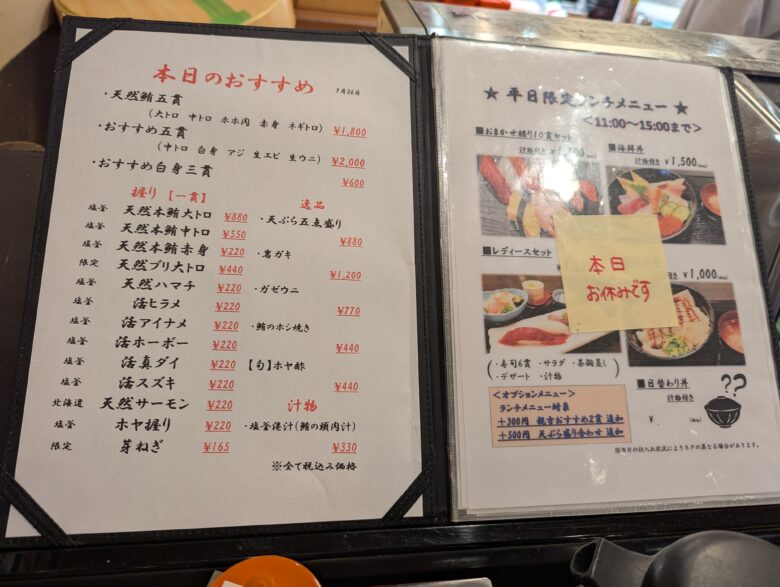 本日のおすすめ 7月26日
・天然鮪五貫
(大トロ 中トロ ホホ肉 赤身 ネギトロ) ¥1,800
・おすすめ五貫
(中トロ 白身 アジ 生エビ 生ウニ) ¥2,000
・おすすめ白身三貫
¥600
握り【一貫】
塩釜 天然本鮪大トロ ¥880
塩釜 天然本鮪中トロ ¥550
塩釜 天然本鮪赤身 ¥220
限定 天然ブリ大トロ ¥440
塩釜 天然ハマチ ¥220
塩釜 活ヒラメ ¥220
塩釜 活アイナメ ¥220
塩釜 活ホーボー ¥220
塩釜 活真ダイ ¥220
塩釜 活スズキ ¥220
北海道 天然サーモン ¥220
塩釜 ホヤ握り ¥220
限定 芽ねぎ ¥165
逸品
・天ぷら五点盛り
¥880
・岩ガキ
¥1,200
・ガゼウニ
¥770
・鮪のホシ焼き
¥440
【旬】ホヤ酢
¥440
汁物
・塩釜港汁(鮪の頬肉汁)
¥330
※全て税込み価格
★ 平日限定ランチメニュー ★
<11:00～15:00まで>
■おまかせ握り10貫セット
汁物付き
■海鮮丼
汁物付き ¥1,500(税込)
■レディースセット
¥1,000(税込)
(・寿司6貫 ・サラダ ・茶碗蒸し
・デザート ・汁物)
本日
お休みです
<オプションメニュー>
ランチメニュー対象
+300円 親方おすすめ2貫 追加
+500円 天ぷら盛り合わせ 追加
■日替わり丼
汁物付き
¥ (税込)
??
※当日の仕入れ状況によりネタの異なる場合があります。